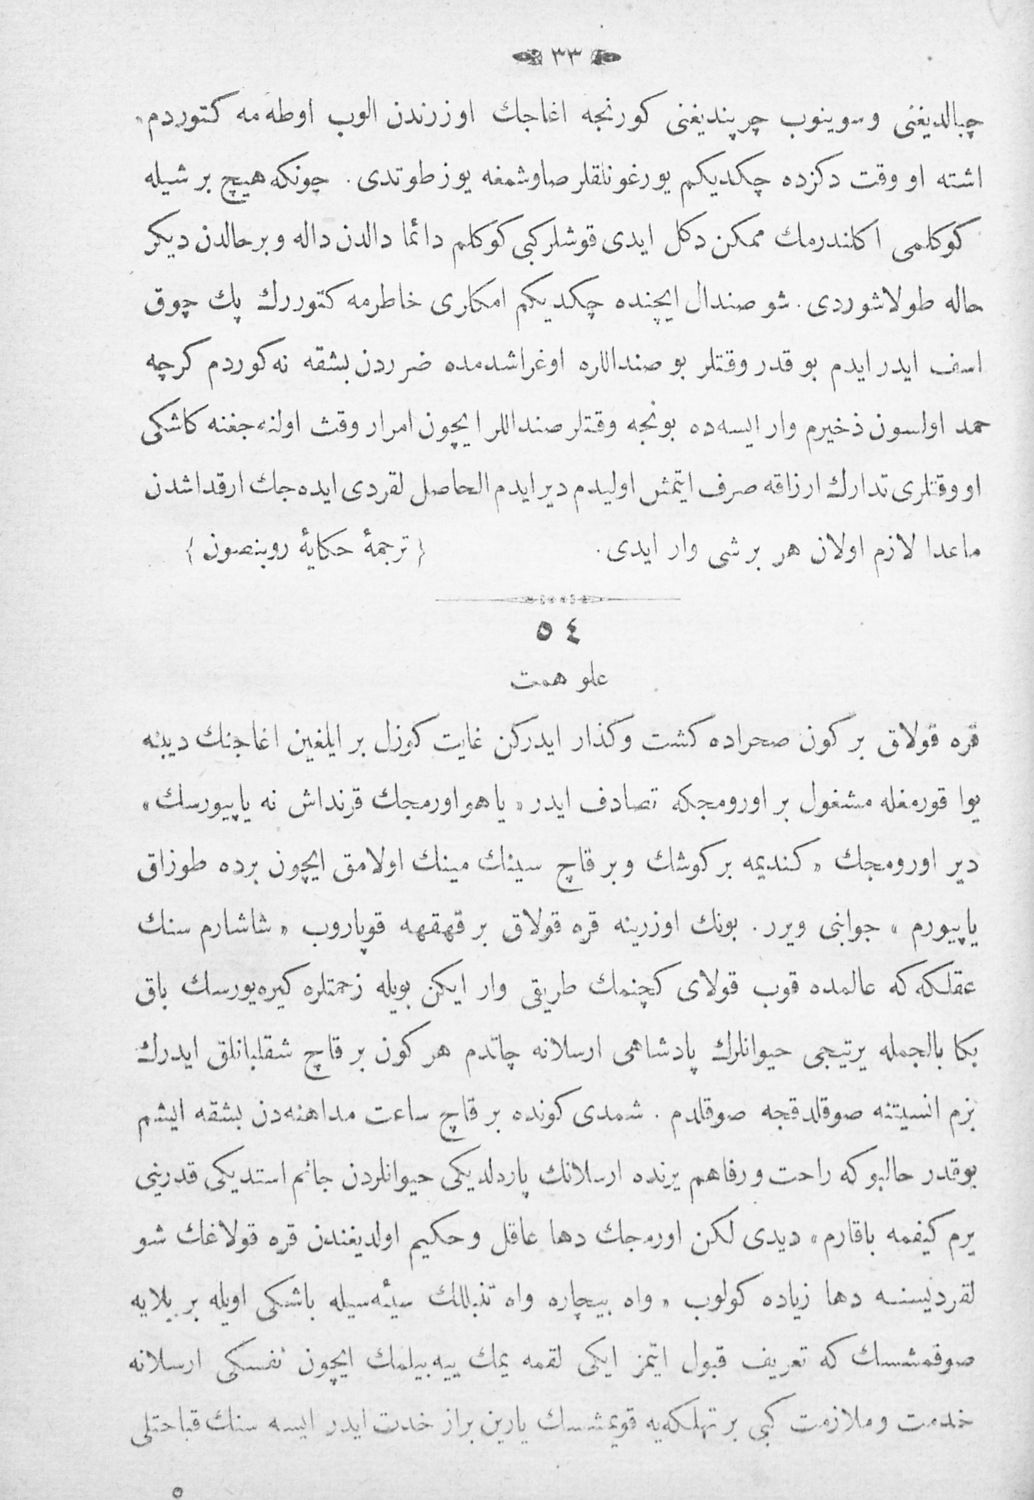 ٣٣
چبالدیغنی و سوینوب چرپندیغنی كورنجه اغاجك اوززندن الوب اوطه مه كتوردم.
اشته او وقت دكزده چكدیكم یورغونلقلر صاوشمغه یوز طوتدی. چونكه هیچ بر شیله
كوكلمی اكلندرمك ممكن دكل ایدی قوشلر كبی كوكلم دائما دالدن داله و بر حالدن دیكر
حاله طولاشوردی. شو صندال ایچنده چكدیكم امكلری خاطرمه كتوررك پك چوق
اسف ایدر ایدم بو قدر وقتلر بو صنداللره اوغراشدمده ضرردن بشقه نه كوردم كرچه
حمد اولسون ذخیرم وار ایسه ده بونجه وقتلر صنداللر ایچون امرار وقت اولنه جغنه كاشكی
او وقتلری تدارك ارزاقه صرف ایتمش اولیدم دیر ایدم الحاصل لقردی ایده جك ارقداشدن
ماعدا لازم اولان هر بر شی وار ایدی. { ترجمۀ حكایۀ روبنصون }
٥٤
علو همت
قره قولاق بر كون صحراده كشت و كذار ایدركن غایت كوزل بر ایلغین اغاجنك دیبنه
یوا قورمغله مشغول بر اورومجكه تصادف ایدر « یاهو اورمجك قرنداش نه یاپیورسك »
دیر اورومجك « كندیمه بر كوشك و بر قاچ سینك مینك اولامق ایچون برده طوزاق
یاپیورم » جوابنی ویرر. بونك اوزرینه قره قولاق بر قهقهه قوپاروب « شاشارم سنك
عقلكه كه عالمده قوب قولای كچنمك طریقی وار ایكن بویله زحمتلره كیره یورسك باق
بكا بالجمله یرتیجی حیوانلرك پادشاهی ارسلانه چاتدم هر كون بر قاچ شقلبانلق ایدرك
بزم انسیتنه صوقلدقجه صوقلدم. شمدی كونده بر قاچ ساعت مداهنه دن بشقه ایشم
یوقدر حالبو كه راحت و رفاهم یرنده ارسلانك پاردلدیكی حیوانلردن جانم استدیكی قدرینی
یرم كیفمه باقارم » دیدی لكن اورمجك دها عاقل و حكیم اولدیغندن قره قولاغك شو
لقردیسنه دها زیاده كولوب « واه بیچاره واه تنبللك سیئه سیله باشكی اویله بر بلایه
صوقمشسك كه تعریف قبول ایتمز ایكی لقمه یمك ییه بیلمك ایچون نفسكی ارسلانه
خدمت و ملازمت كبی بر تهلكه یه قویمشسك یارین براز خدت ایدر ایسه سنك قباحتلی
٥